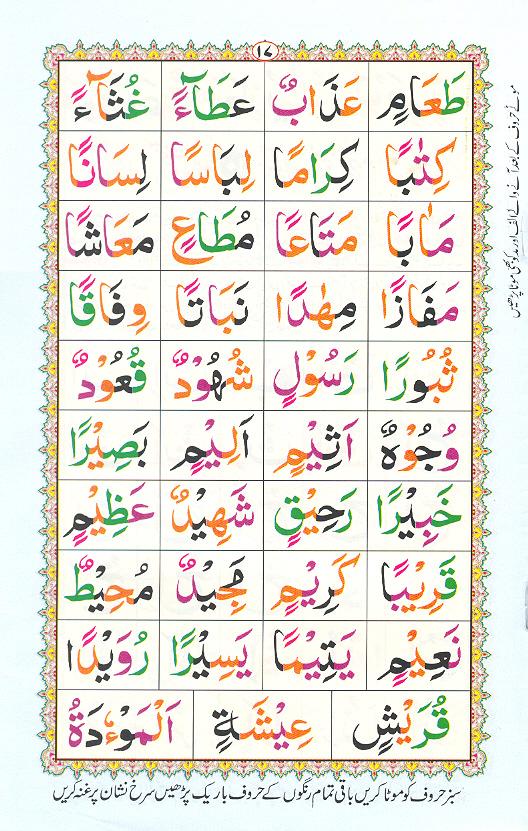 ١٧
طَعَامِ عَذَابٌ عَطَآءً غُثَآءً
كِتٰبًا كِرَامًا لِبَاسًا لِسَانًا
مَاٰبًا مَتَاعًا مُطَاعٍ مَعَاشًا
مَفَازًا مِهٰدًا نَبَاتًا وِفَاقًا
ثُبُوْرًا رَسُوْلٍ شُهُوْدٌ قُعُوْدٌ
وُجُوْهٌ اَثِيْمٍ اَلِيْمٍ بَصِيْرًا
خَبِيْرًا رَحِيْقٍ شَهِيْدٌ عَظِيْمٍ
قَرِيْبًا كَرِيْمٍ مَجِيْدٌ مُحِيْطٌ
نَعِيْمٍ يَتِيْمًا يَسِيْرًا رُوَيْدًا
قُرَيْشٍ عِيْشَةٍ اَلْمَوْءٗدَةُ
سبز حروف کو موٹا کریں باقی تمام رنگوں کے حروف باریک پڑھیں سرخ نشان پر غنہ کریں
موٹے حروف کے بعد آنے والے الف اور مد کو بھی موٹا پڑھیں